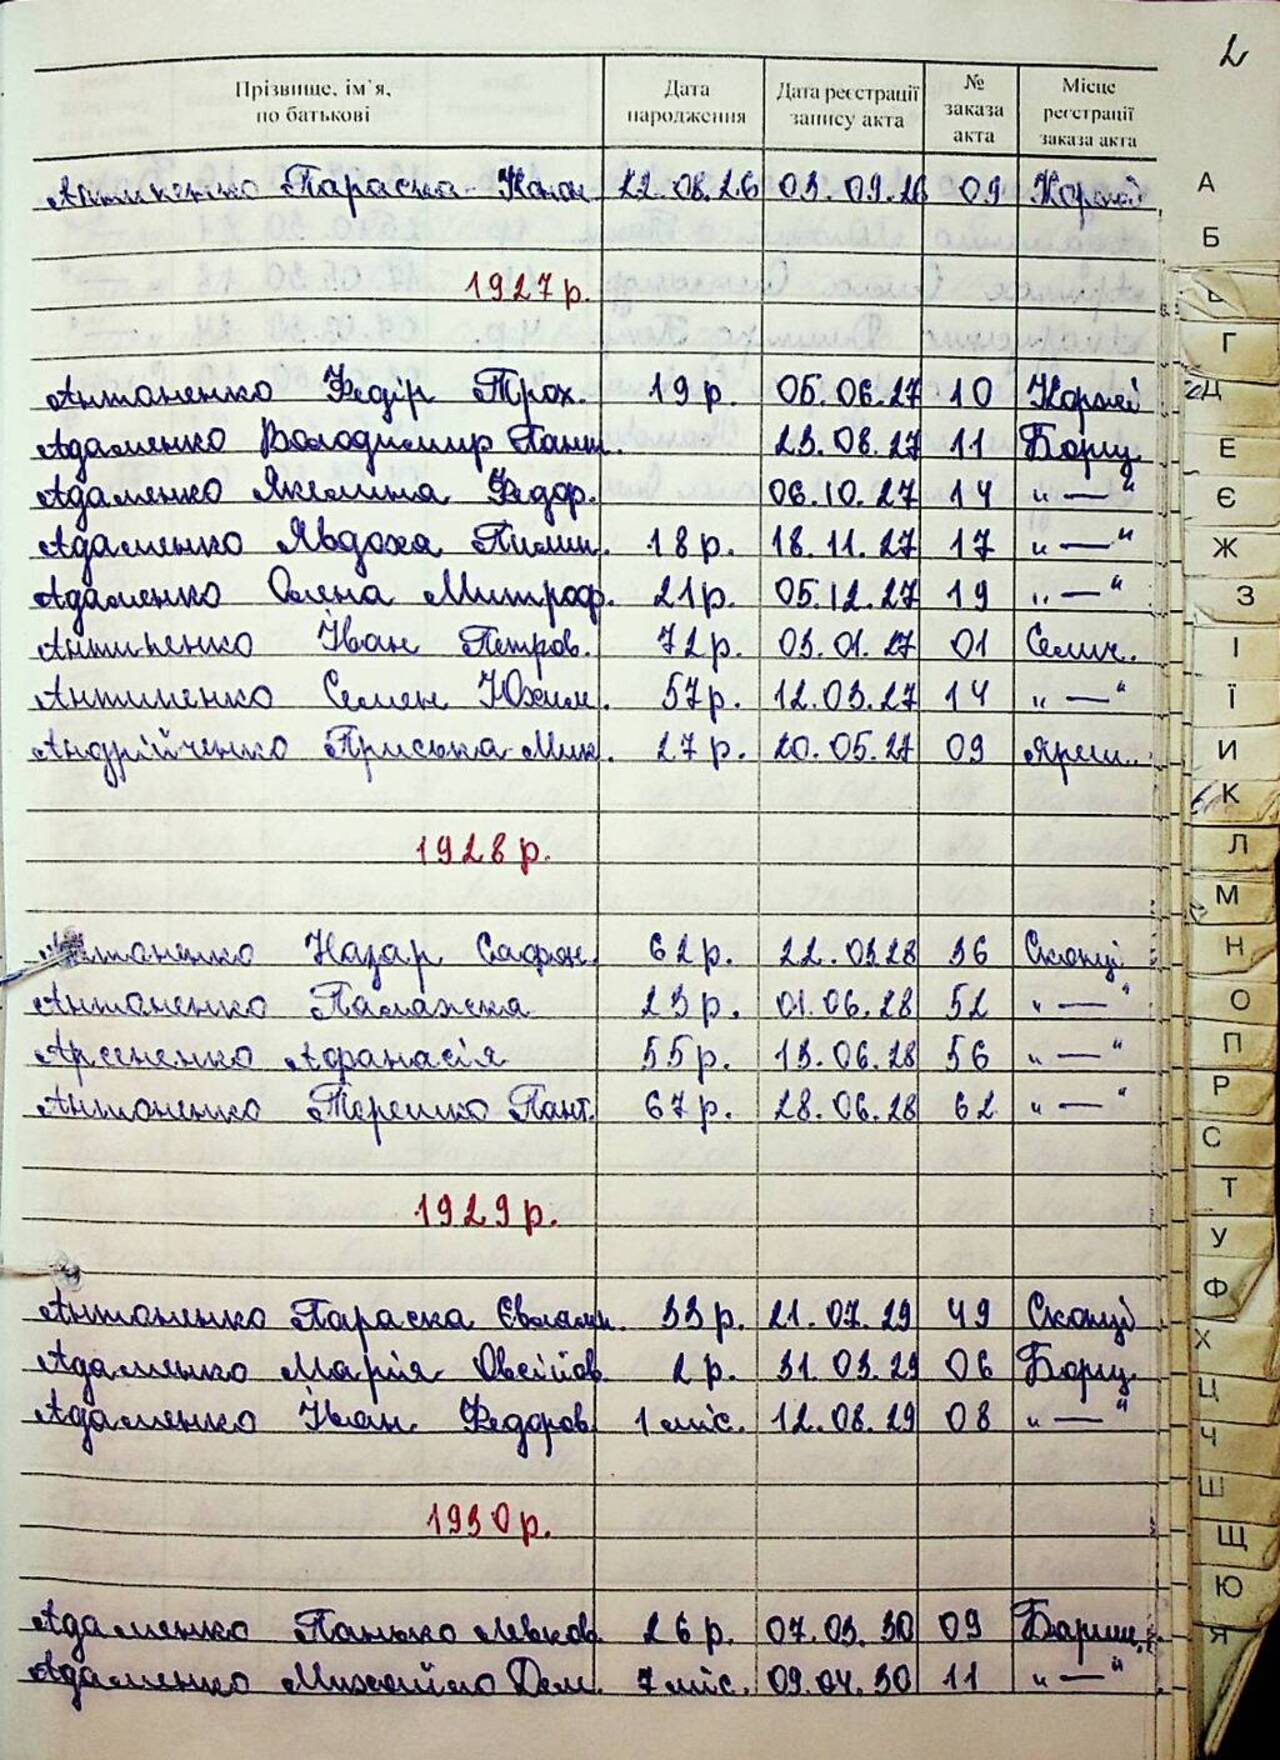 2
Прізвище, ім'я, по батькові | Дата народження | Дата реєстрації запису акта | № заказа акта | Місце реєстрації заказа акта
Антипенко Параска Конон 22.08.26 03.09.26 09 Коржі
1927 р.
Антоненко Федір Трох. 19 р. 05.06.27 10 Коржі
Адаменко Володимир Пант. 23.08.27 11 Борщ.
Адаменко Якелина Федор. 06.10.27 14 " — "
Адаменко Явдоха Пилип. 18 р. 18.11.27 17 " — "
Адаменко Олена Митроф. 21 р. 05.12.27 19 " — "
Антипенко Іван Петров. 72 р. 03.01.27 01 Селич.
Антипенко Семен Юхим. 57 р. 12.03.27 14 " — "
Андрійченко Приська Мик. 27 р. 20.05.27 09 Яреш..
1928 р.
Антоненко Назар Сафон. 62 р. 22.03.28 36 Скопці
Антоненко Палажка 23 р. 01.06.28 52 " — "
Арсененко Афанасія 55 р. 13.06.28 56 " — "
Антоненко Терешко Пант. 67 р. 28.06.28 62 " — "
1929 р.
Антоненко Параска Євламп. 33 р. 21.07.29 49 Скопці
Адаменко Марія Овсійов. 2 р. 31.03.29 06 Борщ.
Адаменко Іван Федоров. 1 міс. 12.08.29 08 " — "
1930 р.
Адаменко Панько Левков. 26 р. 07.03.30 09 Бариш.
Адаменко Михайло Дем. 7 міс. 09.04.30 11 " — "
А
Б
Г
Д
Е
Є
Ж
З
І
Ї
И
К
Л
М
Н
О
П
Р
С
Т
У
Ф
Х
Ц
Ч
Ш
Щ
Ю
Я